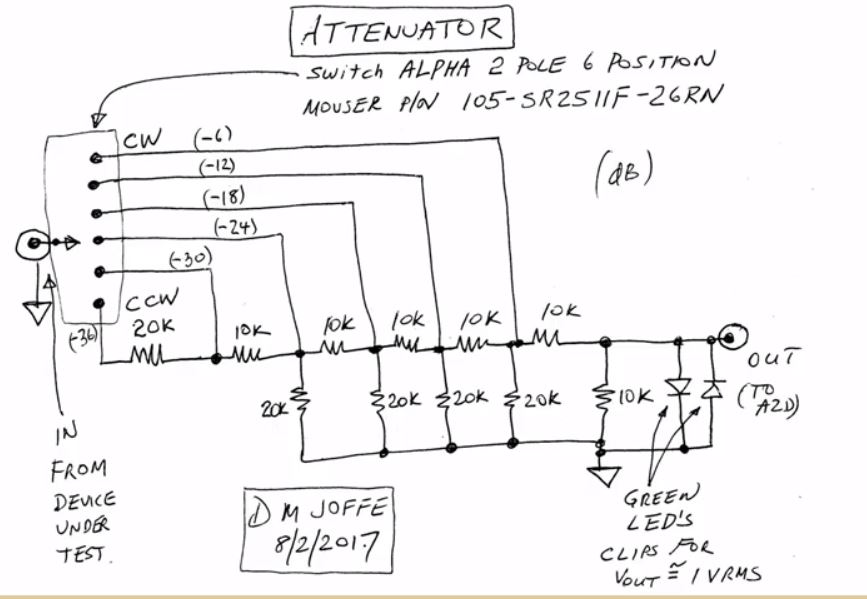 ATTENUATOR
Switch ALPHA 2 POLE 6 POSITION
MOUSER P/N 105-SR2511F-26RN
CW
(-6)
(-12)
(dB)
(-18)
(-24)
(-30)
CCW
(-36)
20K
10K
10K
10K
10K
10K
20K
20K
20K
20K
10K
OUT
(TO
A2D)
IN
FROM
DEVICE
UNDER
TEST.
D M JOFFE
8/2/2017
GREEN
LED'S
CLIPS FOR
VOUT ≅ 1 VRMS